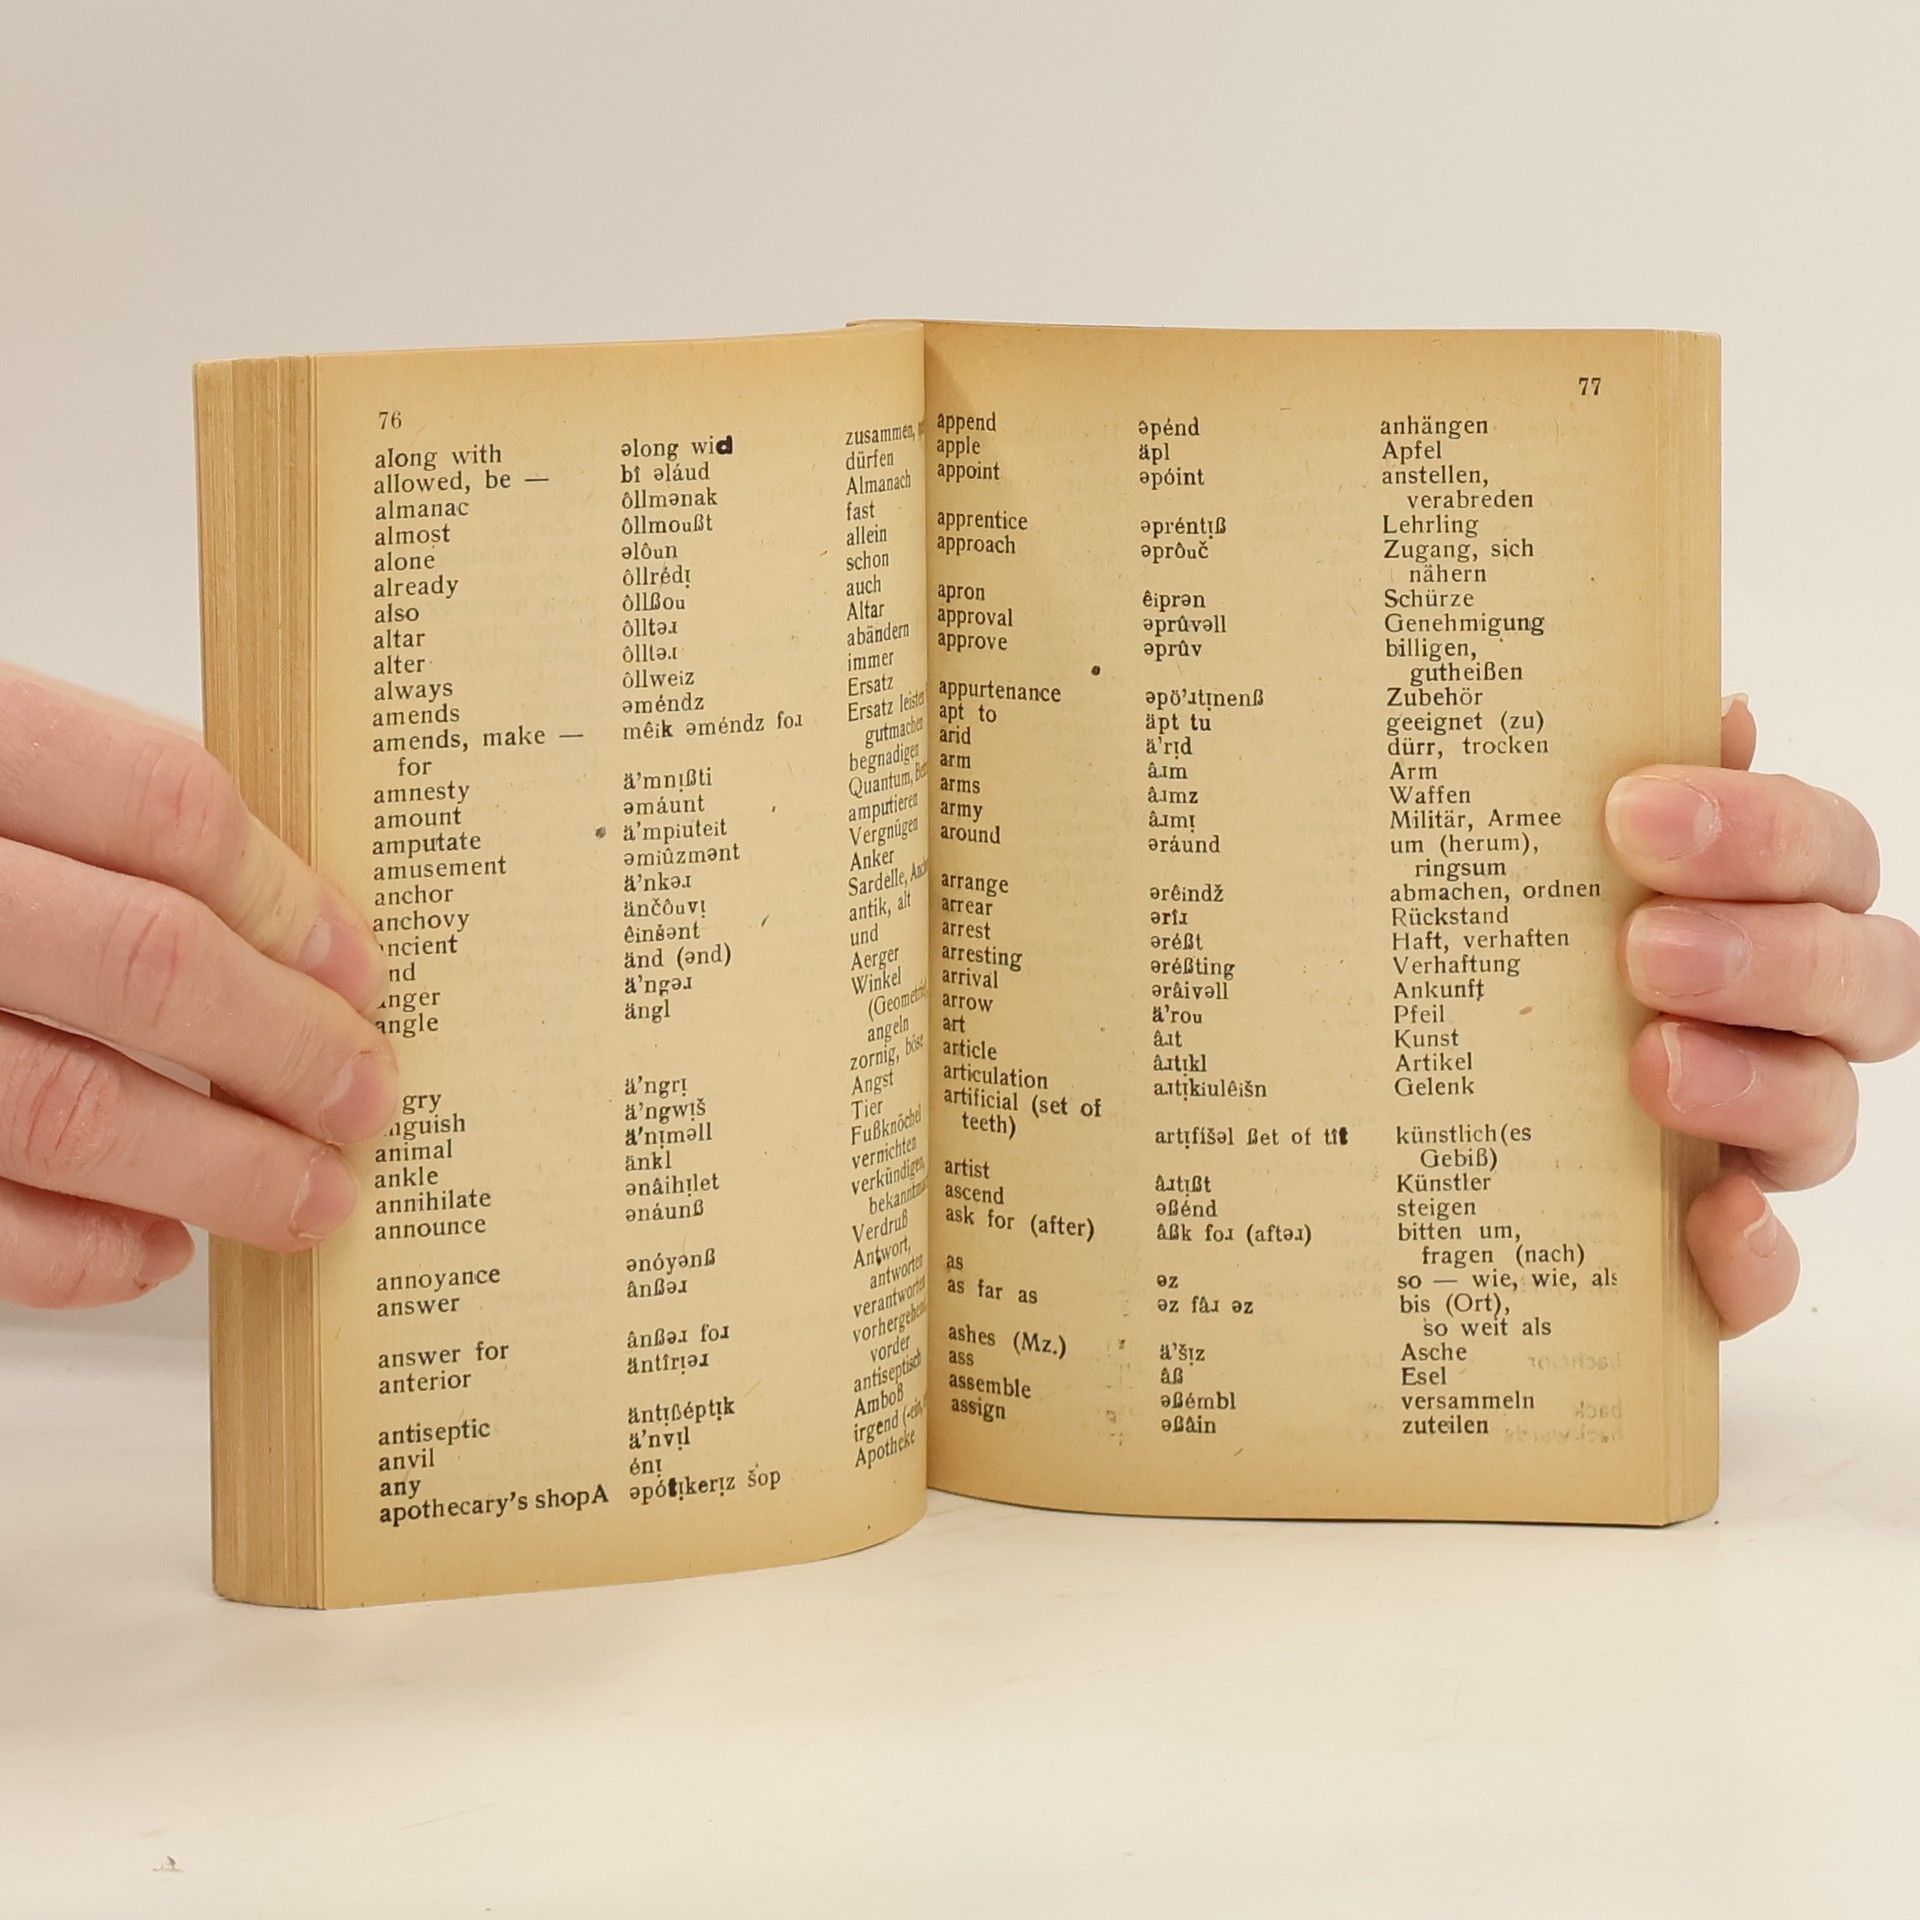 76
along with əlong wid zusammen,
allowed, be — bî əláud dürfen
almanac ôllmənak Almanach
almost ôllmoußt fast
alone əlôun allein
already ôllrédị schon
also ôllßou auch
altar ôlltəɹ Altar
alter ôlltəɹ abändern
always ôllweiz immer
amends əméndz Ersatz
amends, make — mêik əméndz foɹ Ersatz leisten
for gutmachen
amnesty ä’mnịßti begnadigen
amount əmáunt Quantum,
amputate ä’mpiuteit amputieren
amusement əmiûzmənt Vergnügen
anchor ä’nkəɹ Anker
anchovy änčôuvị Sardelle,
ncient êinšənt antik, alt
nd änd (ənd) und
nger ä’ngəɹ Aerger
angle ängl Winkel
(Geometrie)
angeln
gry ä’ngrị zornig, böse
nguish ä’ngwịš Angst
animal ä’nịməll Tier
ankle änkl Fußknöchel
annihilate ənâihịlet vernichten
announce ənáunß verkündigen,
annoyance ənóyənß Verdruß
answer ânßəɹ Antwort,
antworten
answer for ânßəɹ foɹ verantworten
anterior äntîrịəɹ
vorder
antiseptic äntịßéptịk antiseptisch
anvil ä’nvịl Amboß
any énị irgend
apothecary’s shopA əpótịkerịz šop Apotheke
77
append əpénd anhängen
apple äpl Apfel
appoint əpóint anstellen,
verabreden
apprentice əpréntịß Lehrling
approach əprôuč Zugang, sich
nähern
apron êiprən Schürze
approval əprûvəll Genehmigung
approve əprûv billigen,
gutheißen
appurtenance əpö’ɹtịnenß Zubehör
apt to äpt tu geeignet (zu)
arid ä’rịd dürr, trocken
arm âɹm Arm
arms âɹmz Waffen
army âɹmị Militär, Armee
around əráund um (herum),
ringsum
arrange ərêindž abmachen, ordnen
arrear ərîɹ Rückstand
arrest əréßt Haft, verhaften
arresting əréßting Verhaftung
arrival ərâivəll Ankunft
arrow ä’rou Pfeil
art âɹt Kunst
article âɹtịkl Artikel
articulation aɹtịkiulêišn Gelenk
artificial (set of
teeth) artịfíšəl ßet of tît künstlich(es
Gebiß)
artist âɹtịßt Künstler
ascend əßénd steigen
ask for (after) âßk foɹ (aftəɹ) bitten um,
fragen (nach)
as əz so — wie, wie, als
as far as əz fâɹ əz bis (Ort),
so weit als
ashes (Mz.) ä’šịz Asche
ass âß Esel
assemble əßémbl versammeln
assign əßâin zuteilen